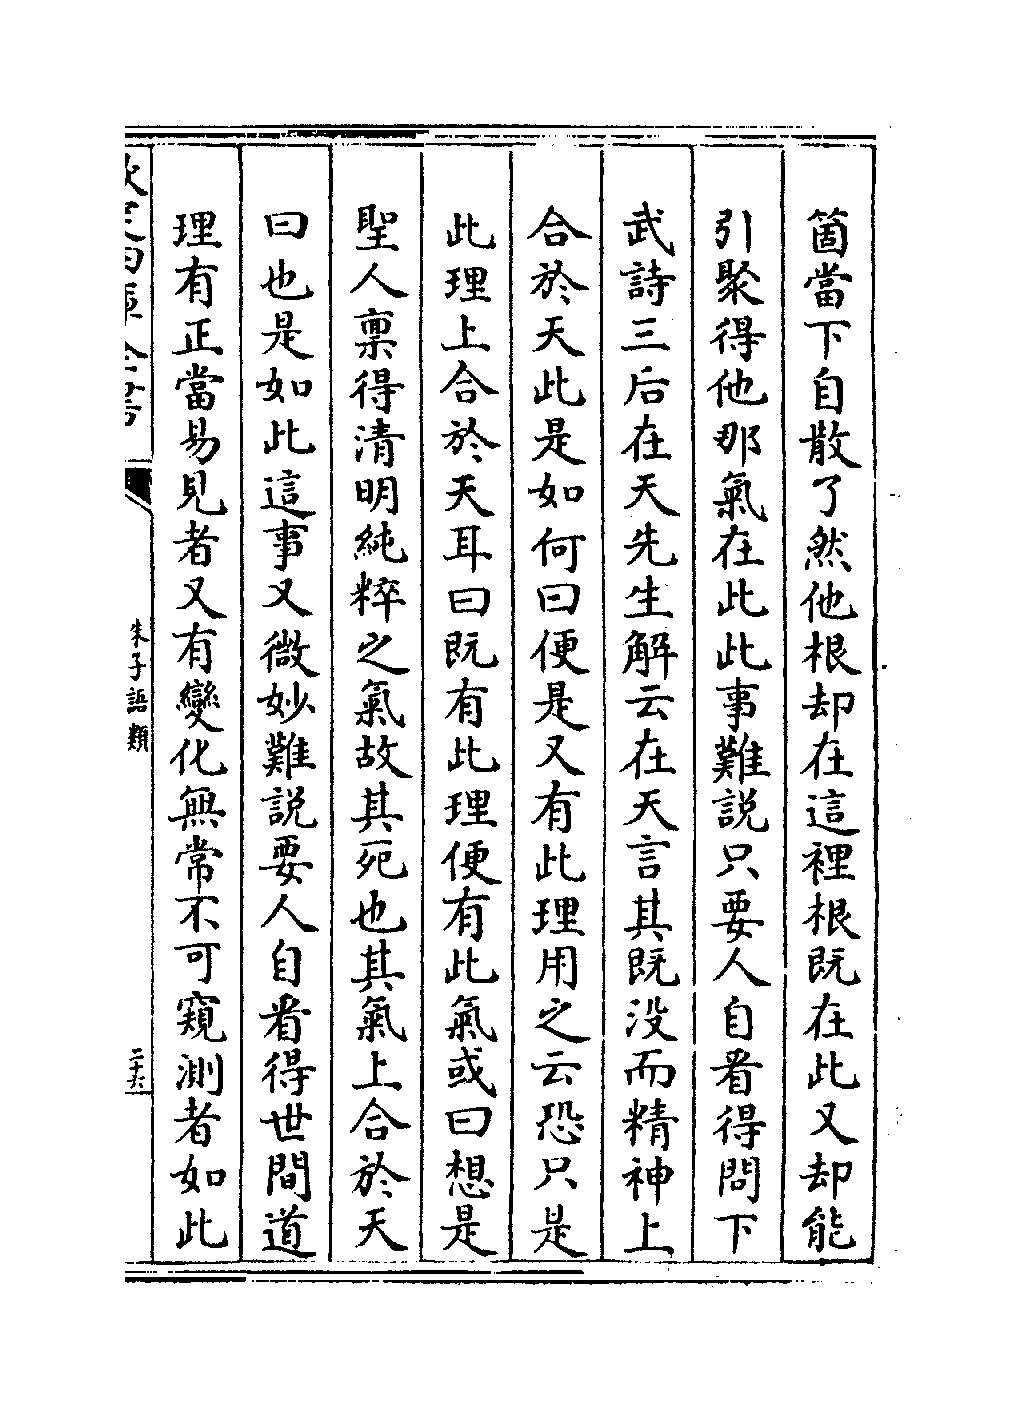 箇當下自散了然他根却在這裡根既在此又却能
引聚得他那氣在此此事難説只要人自看得問下
武詩三后在天先生解云在天言其既没而精神上
合於天此是如何曰便是又有此理用之云恐只是
此理上合於天耳曰既有此理便有此氣或曰想是
聖人禀得清明純粹之氣故其死也其氣上合於天
曰也是如此這事又微妙難説要人自看得世間道
理有正當易見者又有變化無常不可窺測者如此
欽定四庫全書
朱子語類
二十六